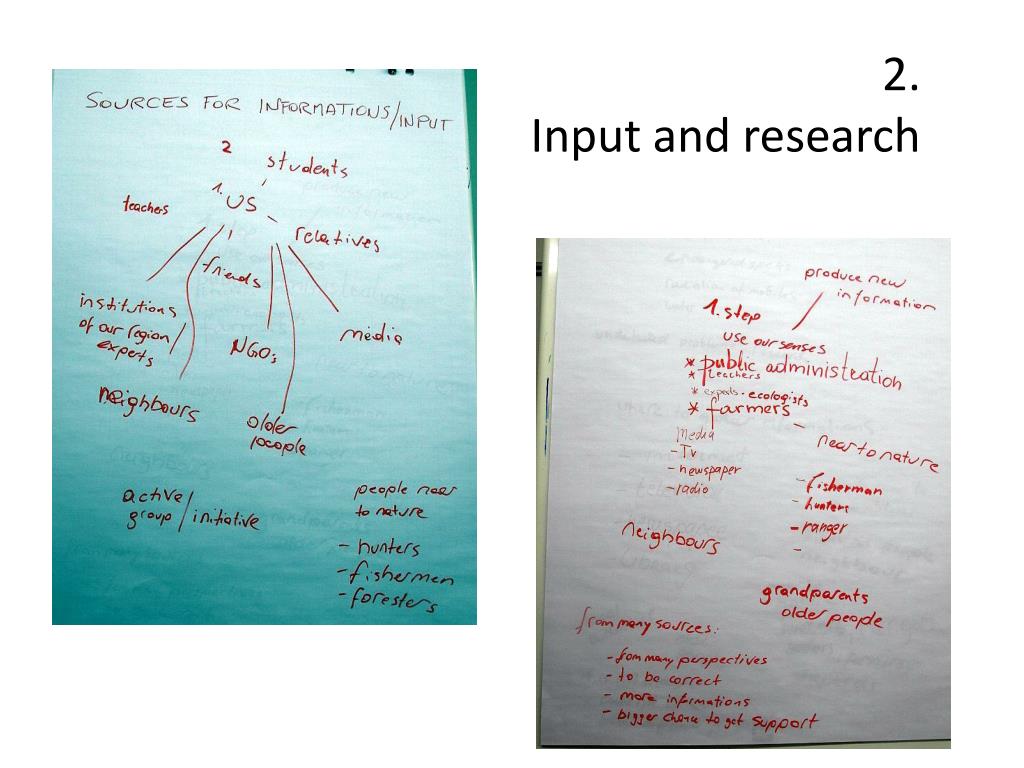 2.
Input and research
SOURCES FOR INFORMATIONS/INPUT
2
students
1. US
teachers
relatives
friends
institutions
of our region/
experts
NGOs
media
neighbours
older
people
active
group/initiative
people near
to nature
- hunters
- fishermen
- foresters
produce new
information
1. step
use our senses
* public administration
* teachers
* experts - ecologists
* farmers
Media
- Tv
- newspaper
- radio
near to nature
- fisherman
- hunters
- ranger
-
neighbours
grandparents
older people
from many sources:
- fom many perspectives
- to be correct
- more informations
- bigger chance to get support